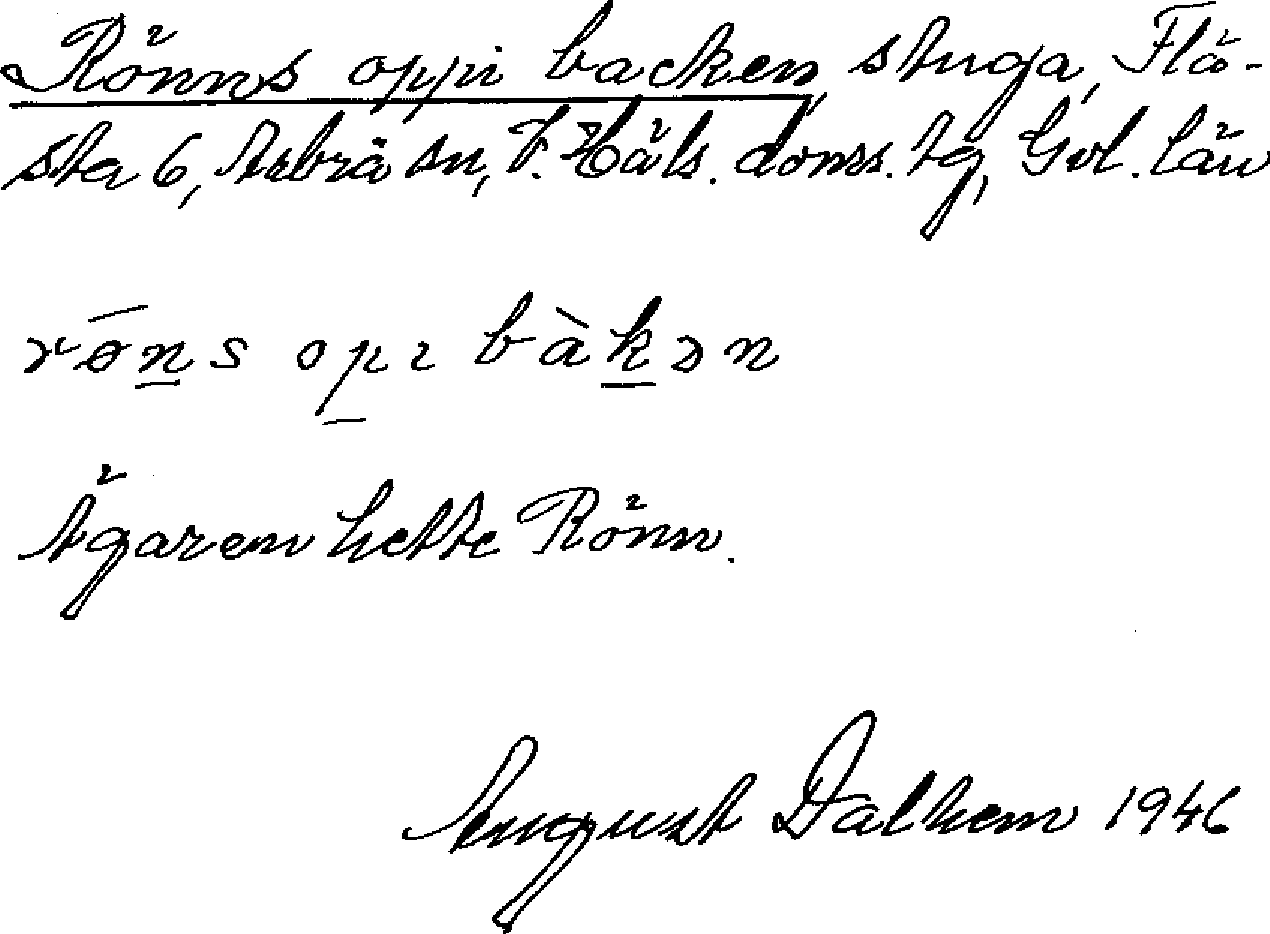 Rönns oppi backen, stuga, Flä-
sta 6, Arbrå sn, V. Häls. doms. tg, Gvl. län
rȫn̲s op̲ı bàk̲ən
Ägaren hette Rönn.
August Dalhem 1946